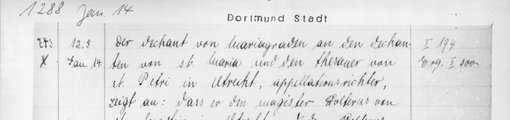 1288 Jan. 14
Dortmund Stadt
273 12.8 Der Dechant von Mariagraden an den Dechan- I 194
X Jan. 14 ten von st. Maria und den Thesauer von Org. I 200
st. Petri in Utrecht, appellationsrichter,
zeigt an: dass er den magister Wolterus von